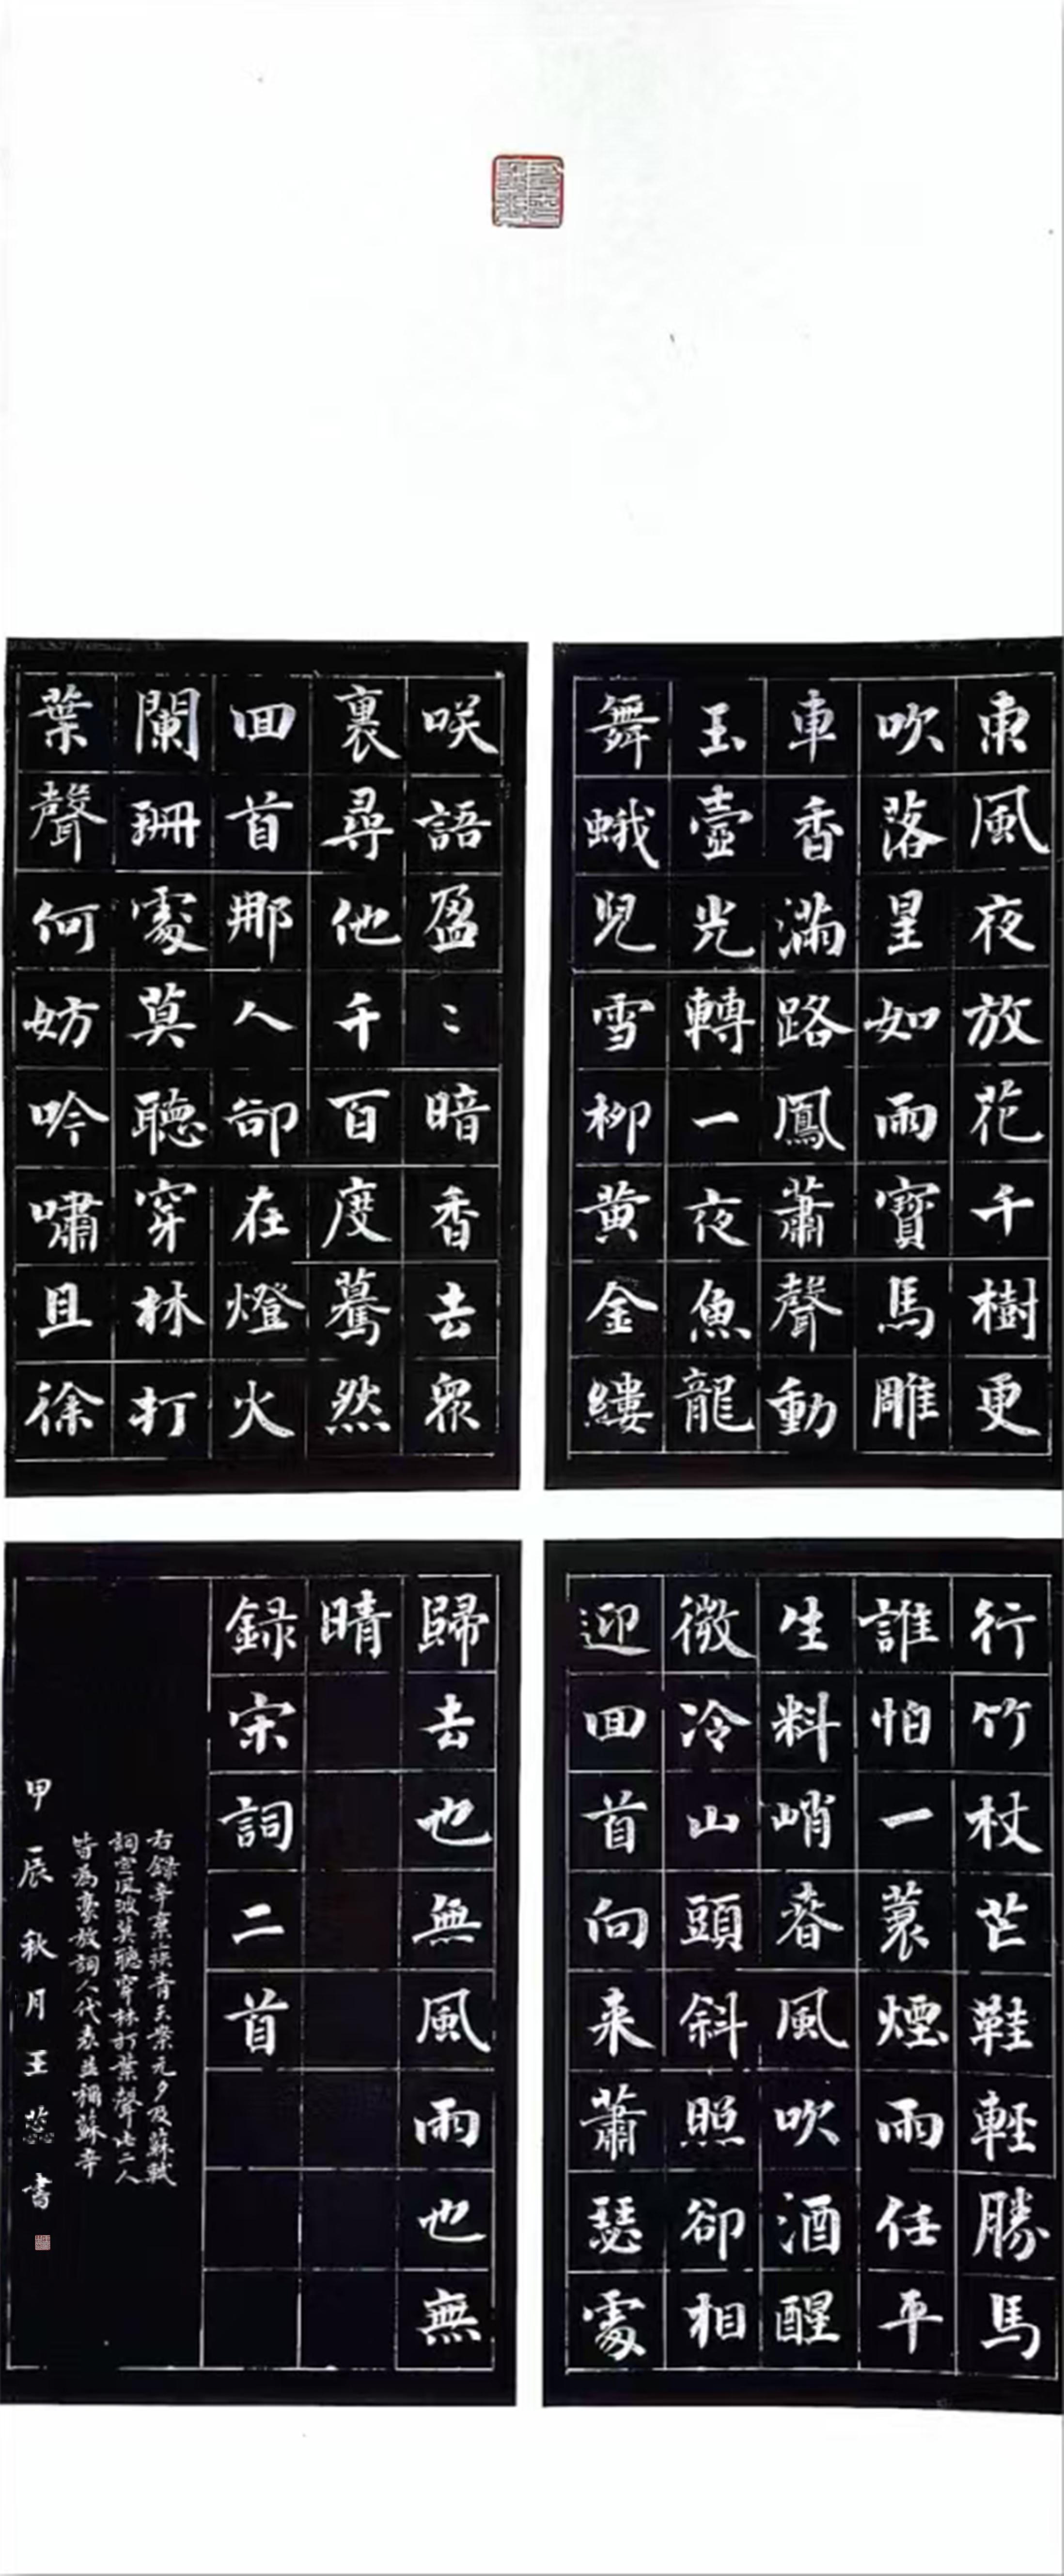 東風夜放花千樹更
吹落星如雨寶馬雕
車香滿路鳳蕭聲動
玉壺光轉一夜魚龍
舞蛾兒雪柳黄金縷
咲語盈〻暗香去衆
裏尋他千百度驀然
回首那人卻在燈火
闌珊處莫聽穿林打
葉聲何妨吟嘯且徐
行竹杖芒鞋輕勝馬
誰怕一蓑煙雨任平
生料峭春風吹酒醒
微冷山頭斜照卻相
迎回首向来蕭瑟處
歸去也無風雨也無
晴
録宋詞二首
右録辛棄疾青玉案元夕及蘇軾
詞定風波莫聽穿林打葉聲此二人
皆為豪放詞人代表並稱蘇辛
甲辰秋月王蕊書